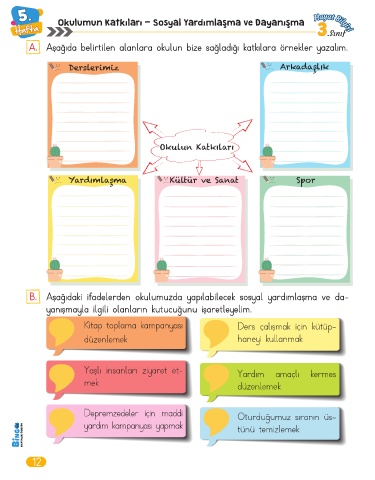 5.
Hafta
Okulumun Katkıları – Sosyal Yardımlaşma ve Dayanışma
Hayat Bilgisi
3.Sınıf
A. Aşağıda belirtilen alanlara okulun bize sağladığı katkılara örnekler yazalım.
Derslerimiz
Arkadaşlık
Okulun Katkıları
Yardımlaşma
Kültür ve Sanat
Spor
B. Aşağıdaki ifadelerden okulumuzda yapılabilecek sosyal yardımlaşma ve da-
yanışmayla ilgili olanların kutucuğunu işaretleyelim.
Kitap toplama kampanyası
düzenlemek
Ders çalışmak için kütüp-
haneyi kullanmak
Yaşlı insanları ziyaret et-
mek
Yardım amaçlı kermes
düzenlemek
Depremzedeler için maddi
yardım kampanyası yapmak
Oturduğumuz sıranın üs-
tünü temizlemek
12